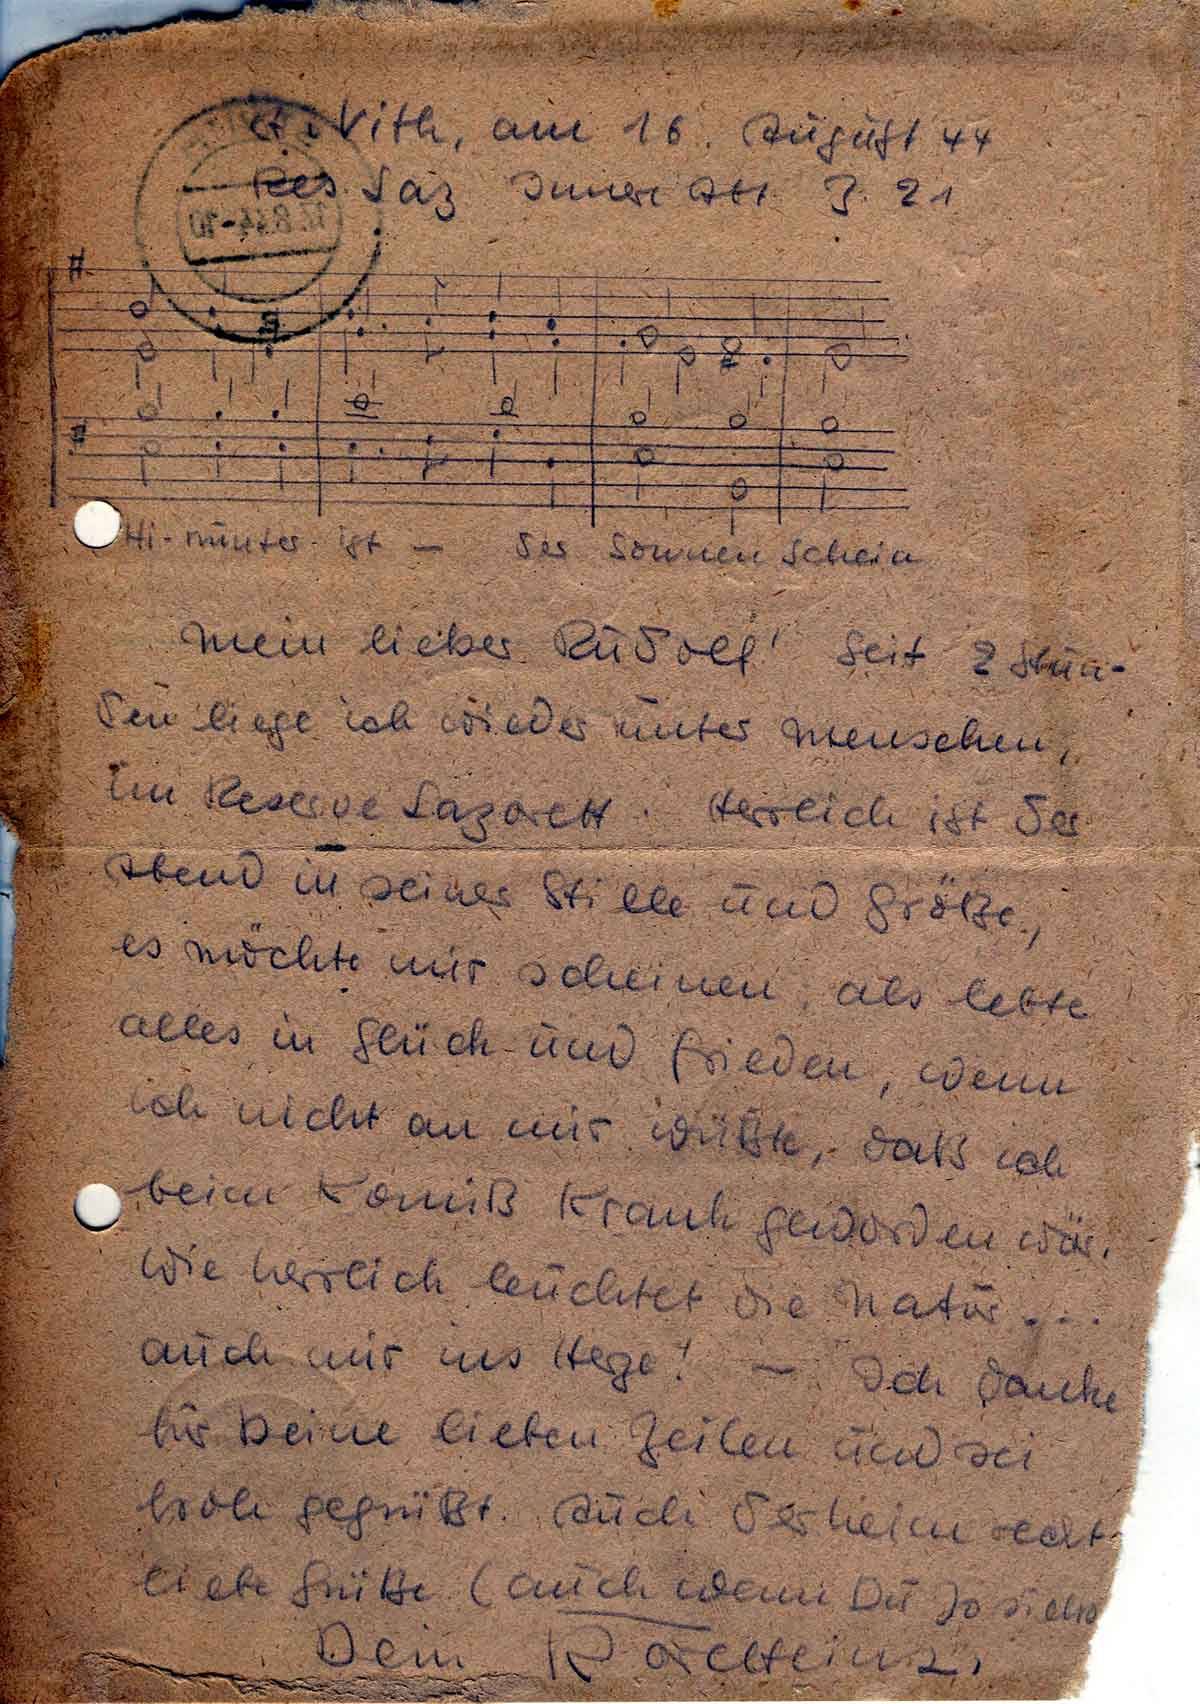 St. Vith, am 16. August 44
Res Laz Innere Abt. Z. 21
17.8.44-10
Hi-nunter ist — der Sonnen schein
Mein lieber Rudolf! Seit 2 Stun-
den liege ich wieder unter Menschen,
im Reserve Lazarett. Herrlich ist der
Abend in seiner Stille und Größe,
es möchte mir scheinen, als lebte
alles in Glück und Frieden, wenn
ich nicht an mir wüßte, daß ich
beim Komiß Krank geworden wär.
Wie herrlich leuchtet die Natur...
auch mir ins Herze! — Ich danke
für Deine lieben Zeilen und sei
froh gegrüßt. Auch daheim recht
liebe Grüße (auch wenn Du
Dein Karlheinz.